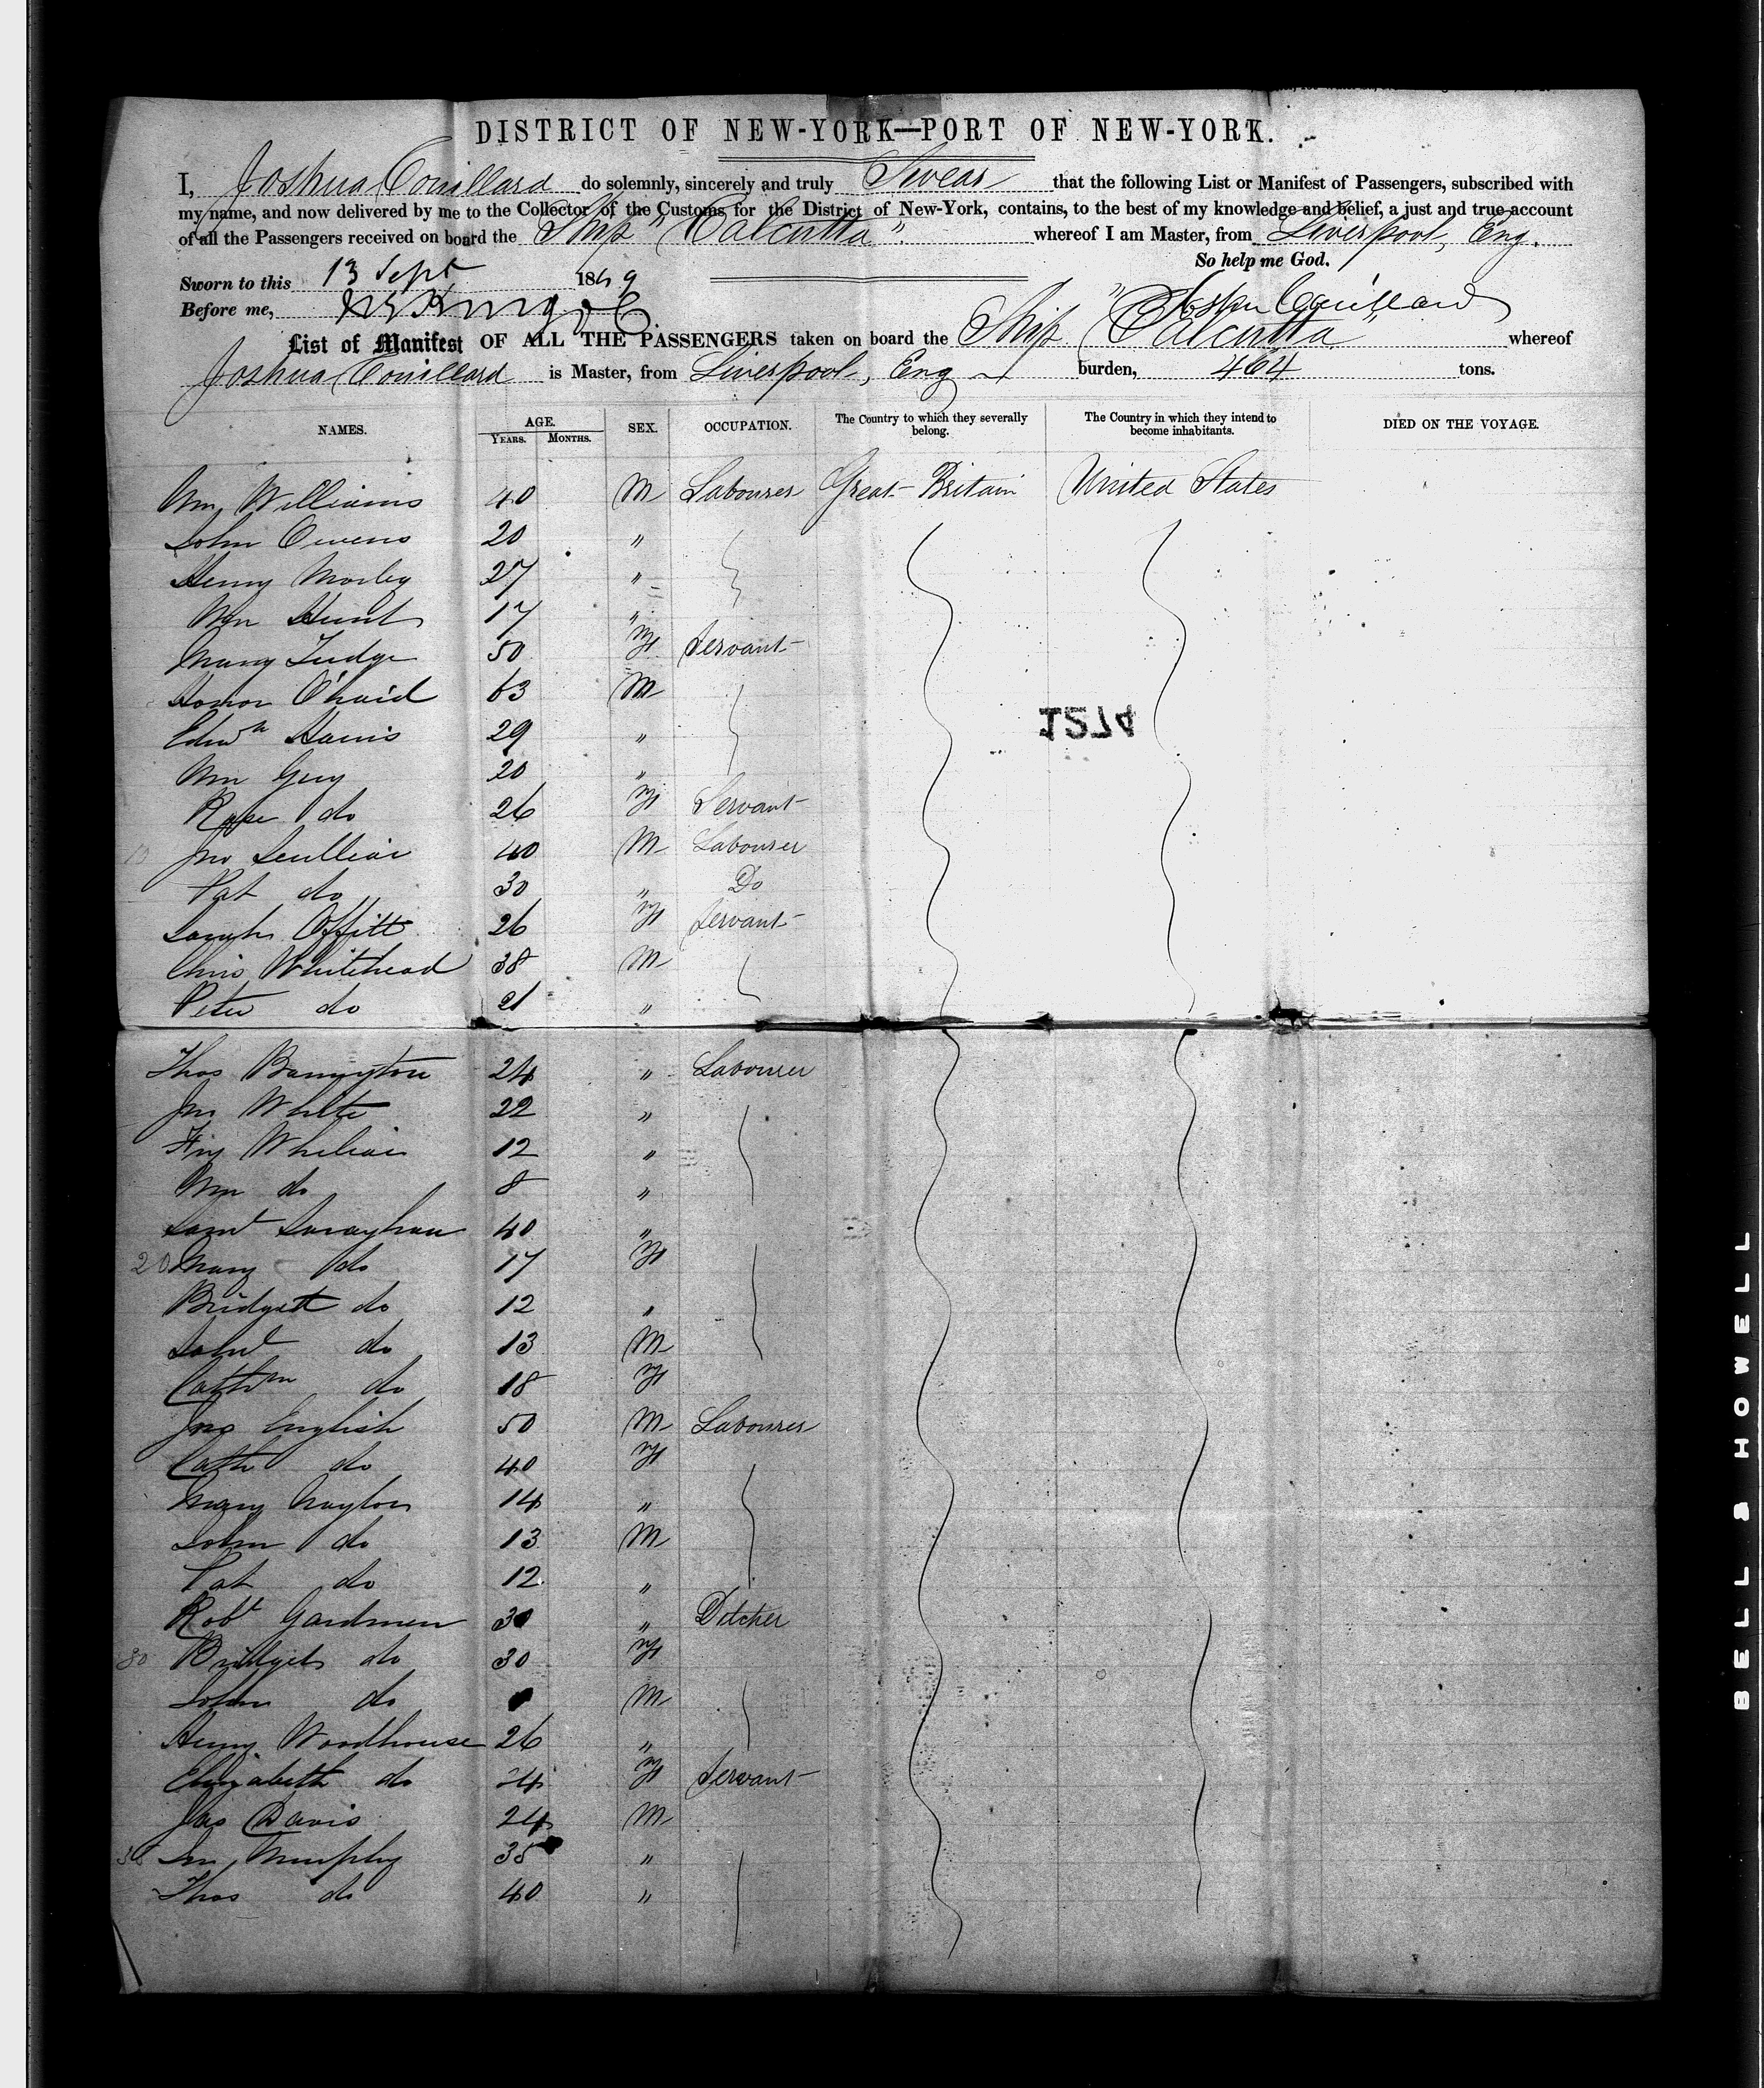 DISTRICT OF NEW-YORK—PORT OF NEW-YORK.
I, Joshua Couillard do solemnly, sincerely and truly Swear that the following List or Manifest of Passengers, subscribed with
my name, and now delivered by me to the Collector of the Customs for the District of New-York, contains, to the best of my knowledge and belief, a just and true account
of all the Passengers received on board the Ship "Calcutta" whereof I am Master, from Liverpool, Eng.
So help me God.
Sworn to this 13 Sept 1849
Joshua Couillard
Before me,
List of Manifest OF ALL THE PASSENGERS taken on board the Ship "Calcutta" whereof
Joshua Couillard is Master, from Liverpool, Eng burden, 464 tons.
NAMES. AGE. YEARS. MONTHS. SEX. OCCUPATION. The Country to which they severally belong. The Country in which they intend to become inhabitants. DIED ON THE VOYAGE.
Wm Williams 40 M Labourer Great Britain United States
John Owens 20 "
Henry Morley 27 "
Wm Hunt 17 "
Mary Judge 50 F Servant
Honor 63 M
1574
Edwd Harris 29 "
Wm Guy 20 "
Rose do 26 F Servant
10 Jno 40 M Labourer
Pat do 30 " Do
Sarah Offitt 26 F Servant
Chris Whitehead 38 M
Peter do 21 "
Thos Barrington 24 " Labourer
Jno White 22 "
Whelian 12 "
Wm do 8 "
Saml 40 "
20 Mary do 17 F
Bridgett do 12 "
do 13 M
Cathne do 18 F
Jno English 50 M Labourer
Cath do 40 F
Mary Naylon 14 "
John do 13 M
Pat do 12 "
Robt Gardmen 30 " Ditcher
30 Bridget do 30 F
John do M
Henry Woodhouse 26 "
Elizabeth do 24 F Servant
Jas Davis 24 M
Jno Murphy 35 "
Thos do 40 "
BELL & HOWELL